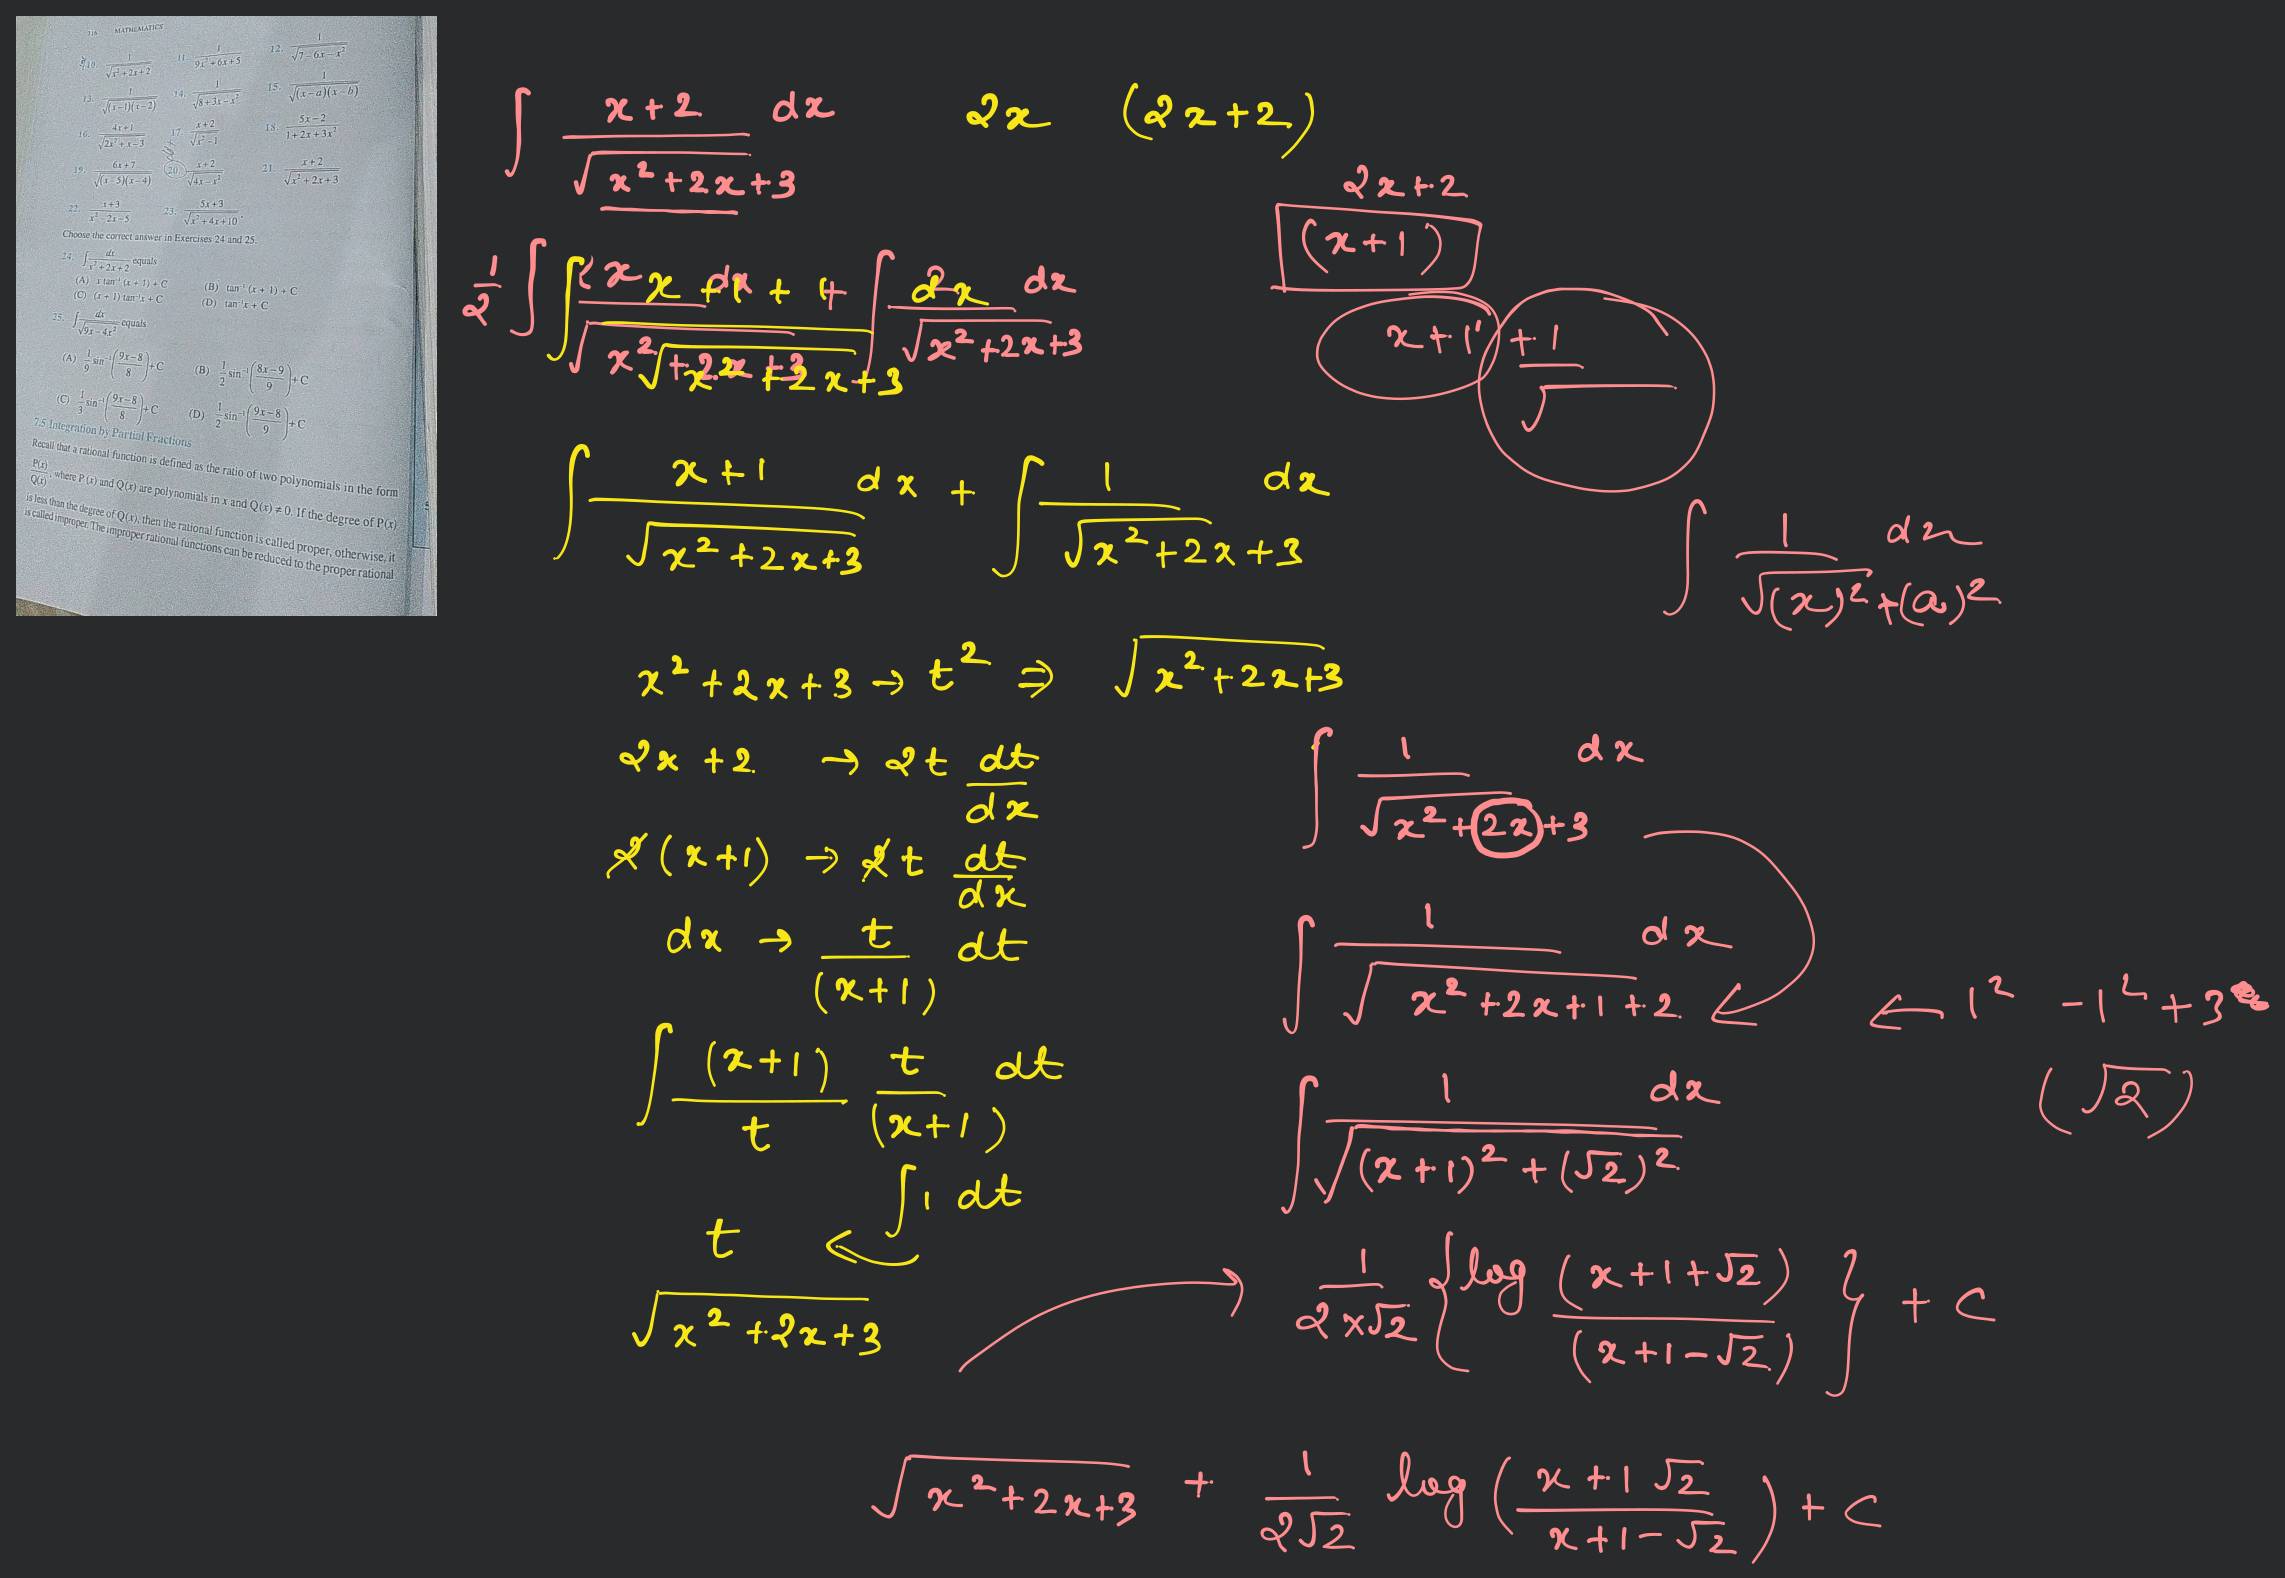 116 MATHEMATICS
10. 1/√(x²+2x+2) 11. 1/(9x²+6x+5) 12. 1/√(7−6x−x²)
13. 1/√((x−1)(x−2)) 14. 1/√(8+3x−x²) 15. 1/√((x−a)(x−b))
16. (4x+1)/√(2x²+x−3) 17. (x+2)/√(x²−1) 18. (5x−2)/(1+2x+3x²)
19. (6x+7)/√((x−5)(x−4)) 20. (x+2)/√(4x−x²) 21. (x+2)/√(x²+2x+3)
22. (x+3)/(x²−2x−5) 23. (5x+3)/√(x²+4x+10).
Choose the correct answer in Exercises 24 and 25.
24. ∫ dx/(x²+2x+2) equals
(A) x tan⁻¹ (x + 1) + C (B) tan⁻¹ (x + 1) + C
(C) (x + 1) tan⁻¹x + C (D) tan⁻¹x + C
25. ∫ dx/√(9x−4x²) equals
(A) 1/9 sin⁻¹((9x−8)/8)+C (B) 1/2 sin⁻¹((8x−9)/9)+C
(C) 1/3 sin⁻¹((9x−8)/8)+C (D) 1/2 sin⁻¹((9x−8)/9)+C
7.5 Integration by Partial Fractions
Recall that a rational function is defined as the ratio of two polynomials in the form
P(x)/Q(x), where P (x) and Q(x) are polynomials in x and Q(x) ≠ 0. If the degree of P(x)
is less than the degree of Q(x), then the rational function is called proper, otherwise, it
is called improper. The improper rational functions can be reduced to the proper rational
∫ (x+2)/√(x²+2x+3) dx 2x (2x+2)
2x+2
(x+1)
x+1 +1/√
∫ (x+1)/√(x²+2x+3) dx + ∫ 1/√(x²+2x+3) dx
∫ 1/√((x)²+(a)²) dx
x²+2x+3 → t² ⇒ √(x²+2x+3)
2x+2 → 2t dt/dx
2(x+1) → 2t dt/dx
dx → t/(x+1) dt
∫ (x+1)/t t/(x+1) dt
∫1 dt
t
√(x²+2x+3)
∫ 1/√(x²+2x+3) dx
∫ 1/√(x²+2x+1+2) dx ← 1² −1² +3
(√2)
∫ 1/√((x+1)²+(√2)²) dx
1/(2×√2) {log (x+1+√2)/(x+1−√2)} + C
√(x²+2x+3) + 1/(2√2) log ((x+1 √2)/(x+1−√2)) + C